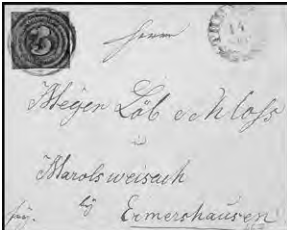 3
Herrn
14
Meyer Löb Schloss
in
Marolsweisach
bei
Ermershausen